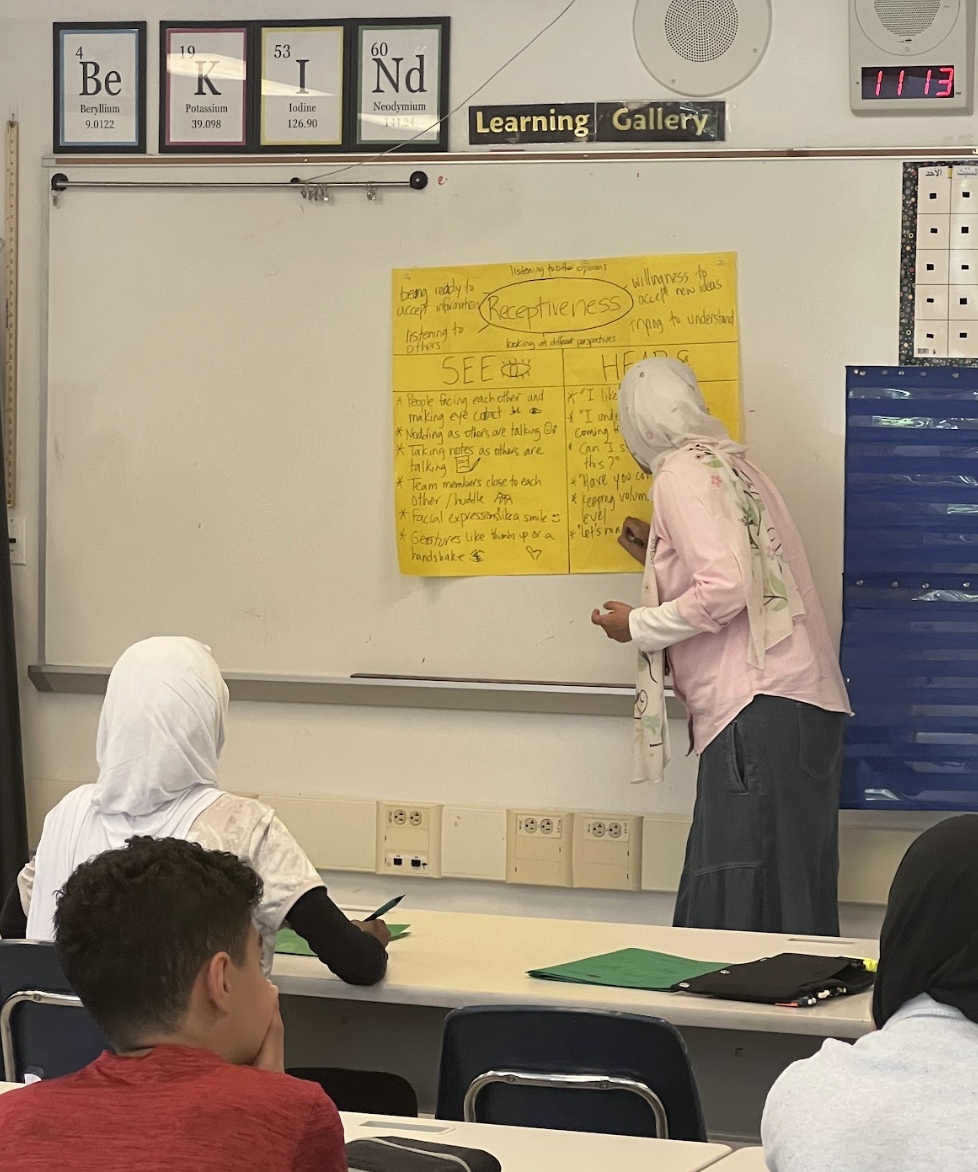 4
Be
Beryllium
9.0122
19
K
Potassium
39.098
53
I
Iodine
126.90
60
Nd
Neodymium
144.24
Learning Gallery
11 13
الأحد
listening to other opinions
being ready to
accept information
listening to
others
Receptiveness
willingness to
accept new ideas
trying to understand
looking at different perspectives
SEE
* People facing each other and
making eye contact
* Nodding as others are talking
* Taking notes as others are
talking
* Team members close to each
other / huddle
* Facial expressions like a smile
* Gestures like thumbs up or a
handshake
HEAR
* "I like
* "I
coming
"Can I
this?"
* "Have you
* keeping
level
* "Let's